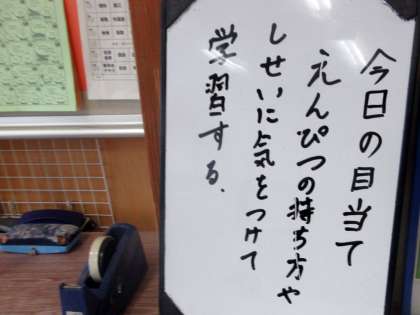 今日の目当て
えんぴつの持ち方や
しせいに気をつけて
学習する。